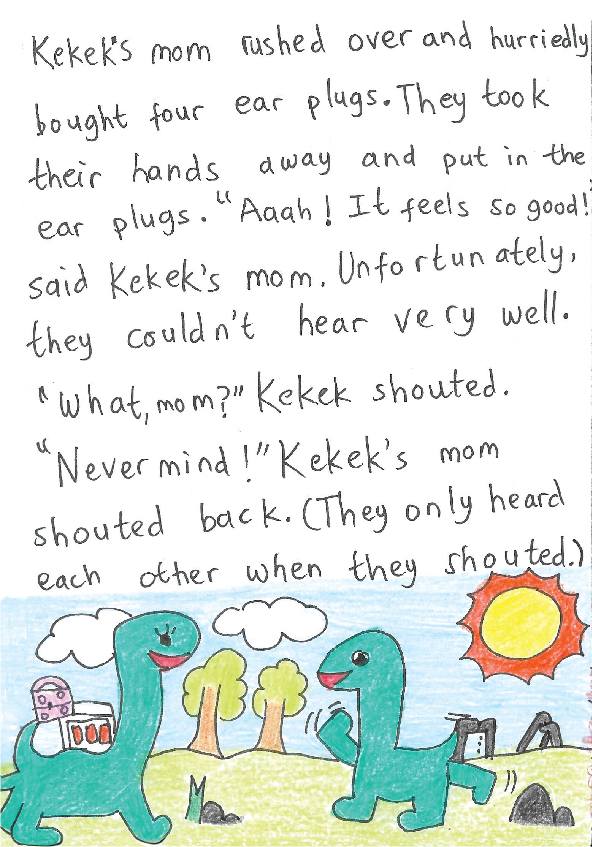 Kekek's mom rushed over and hurriedly
bought four ear plugs. They took
their hands away and put in the
ear plugs. "Aaah! It feels so good!"
said Kekek's mom. Unfortunately,
they couldn't hear very well.
"What, mom?" Kekek shouted.
"Never mind!" Kekek's mom
shouted back. (They only heard
each other when they shouted.)